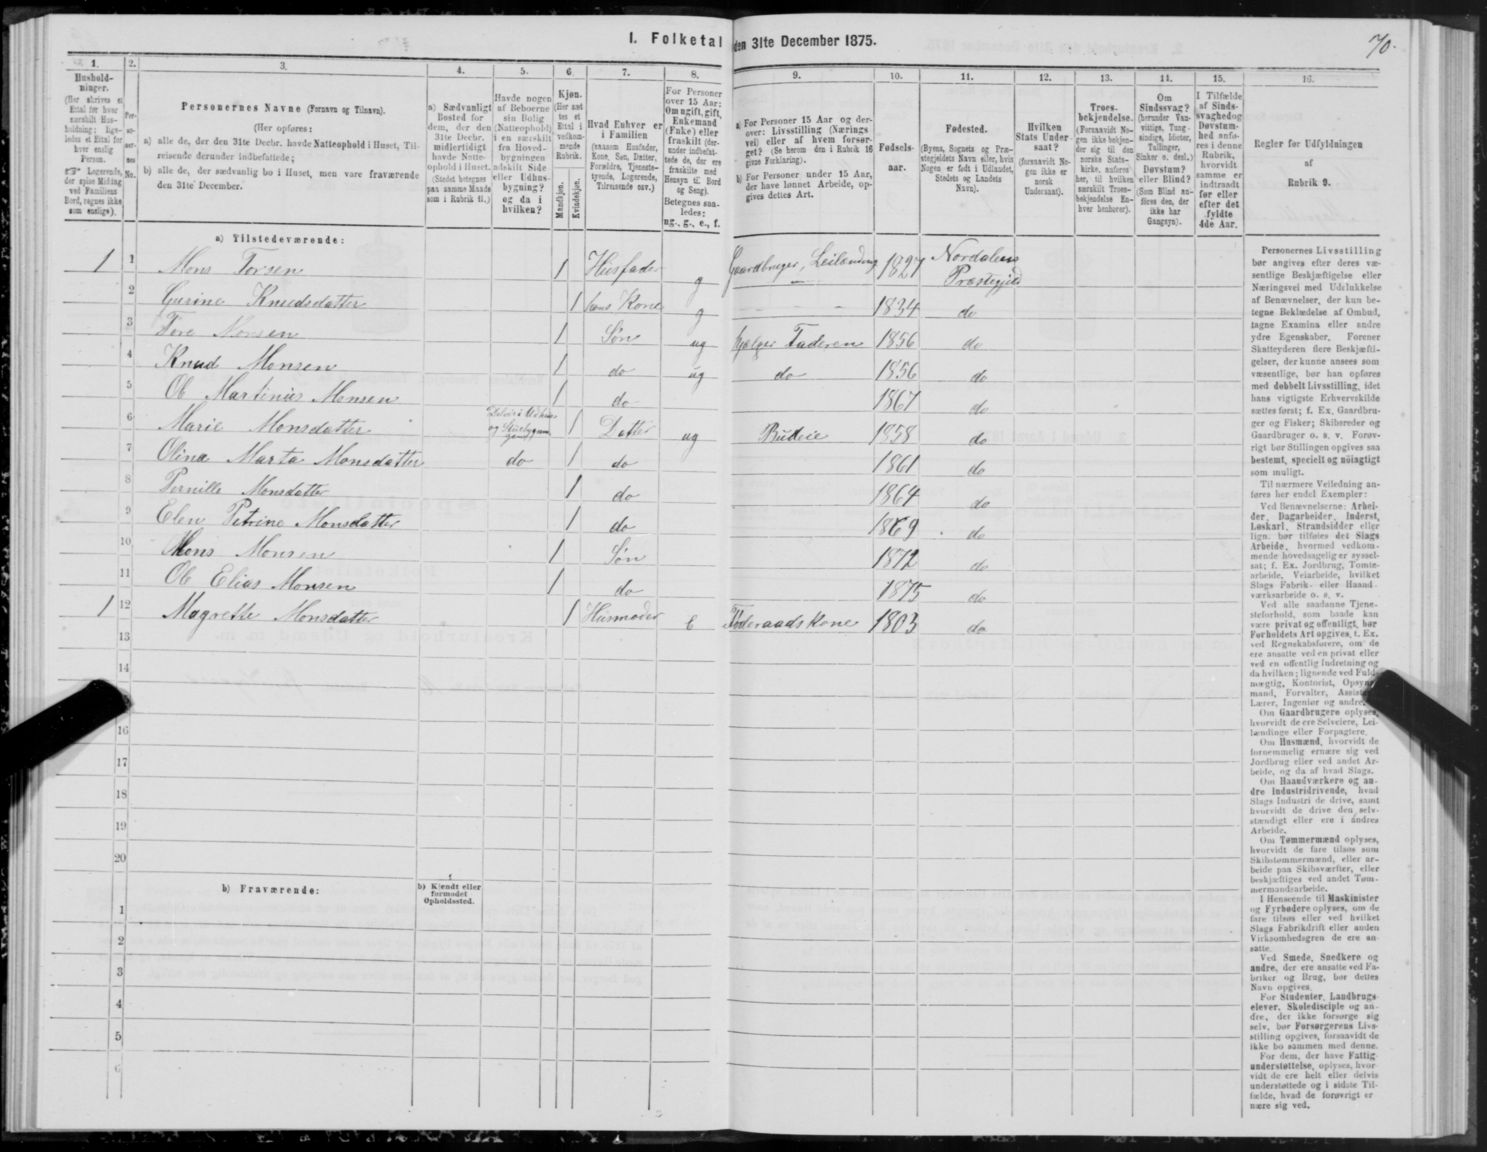 I. Folketal den 31te December 1875.
70.
1.
Hushold-
ninger.
(Her skrives et
Ettal for hver
særskilt Hus-
holdning; lige-
ledes et Ettal for
hver enslig
Person.
Logerende,
der spise Middag
ved Familiens
Bord, regnes ikke
som enslige).
2.
Per-
so-
ner-
nes
No.
3.
Personernes Navne (Fornavn og Tilnavn).
(Her opføres:
a) alle de, der den 31te Decbr. havde Natteophold i Huset, Til-
reisende derunder indbefattede;
b) alle de, der sædvanlig bo i Huset, men vare fraværende
den 31te December.
4.
a) Sædvanligt
Bosted for
dem, der den
31te Decbr.
midlertidigt
havde Natte-
ophold i Huset.
(Stedet betegnes
paa samme Maade
som i Rubrik 11.)
5.
Havde nogen
af Beboerne
sin Bolig
(Natteophold)
i en særskilt
fra Hoved-
bygningen
adskilt Side
eller Udhus-
bygning?
og da i
hvilken?
6.
Kjøn.
(Her sæt-
tes et
Ettal i
vedkom-
mende
Rubrik.
Mandkjøn.
Kvindekjøn.
7.
Hvad Enhver er
i Familien
(saasom Husfader,
Kone, Søn, Datter,
Forældre, Tjeneste-
tyende, Logerende,
Tilreisende osv.)
8.
For Personer
over 15 Aar:
Om ugift, gift,
Enkemand
(Enke) eller
fraskilt (der-
under indbefat-
tede de, der ere
fraskilte med
Hensyn til Bord
og Seng).
Betegnes saa-
ledes:
ug., g., e., f.
9.
a) For Personer 15 Aar og der-
over: Livsstilling (Nærings-
vei) eller af hvem forsør-
get? (Se herom den i Rubrik 16
givne Forklaring).
b) For Personer under 15 Aar,
der have lønnet Arbeide, op-
gives dettes Art.
10.
Fødsels-
aar.
11.
Fødested.
(Byens, Sognets og Præ-
stegjeldets Navn eller, hvis
Nogen er født i Udlandet,
Stedets og Landets
Navn).
12.
Hvilken
Stats Under-
saat?
(forsaavidt No-
gen ikke er
norsk
Undersaat).
13.
Troes-
bekjendelse.
(Forsaavidt No-
gen ikke bekjen-
der sig til den
norske Stats-
kirke, anføres
her, til hvilken
særskilt Troes-
bekjendelse En-
hver henhører).
14.
Om
Sindssvag?
(herunder Van-
vittige, Tung-
sindige, Idioter,
Tullinger,
Sinker o. desl.)
Døvstum?
eller Blind?
(Som Blind an-
føres den, der
ikke har
Gangsyn).
15.
I Tilfælde
af Sinds-
svaghed og
Døvstum-
hed anfø-
res i denne
Rubrik,
hvorvidt
samme er
indtraadt
før eller
efter det
fyldte
4de Aar.
16.
Regler for Udfyldningen
af
Rubrik 9.
a) Tilstedeværende:
1 1 Mons Torsen 1 Husfader g Gaardbruger, Leilænding 1827 Nordalens Præstegjeld
2 Gurine Knudsdatter 1 hans Kone g — 1834 do
3 Tore Monsen 1 Søn ug hjælper Faderen 1856 do
4 Knud Monsen 1 do ug do 1856 do
5 Ole Martinius Monsen 1 do 1867 do
6 Marie Monsdatter 1 Datter ug Budeie 1858 do
7 Olina Marta Monsdatter do 1 do 1861 do
8 Pernille Monsdatter 1 do 1864 do
9 Elen Petrine Monsdatter 1 do 1869 do
10 Mons Monsen 1 Søn 1872 do
11 Ole Elias Monsen 1 do 1875 do
1 12 Magrethe Monsdatter 1 Husmoder e Føderaadskone 1803 do
13
14
16
17
18
19
20
b) Fraværende:
b) Kjendt eller
formodet
Opholdssted.
1
2
3
4
5
6
Personernes Livsstilling
bør angives efter deres væ-
sentlige Beskjæftigelse eller
Næringsvei med Udelukkelse
af Benævnelser, der kun be-
tegne Beklædelse af Ombud,
tagne Examina eller andre
ydre Egenskaber. Forener
Skatteyderen flere Beskjæfti-
gelser, der kunne ansees som
væsentlige, bør han opføres
med dobbelt Livsstilling, idet
hans vigtigste Erhvervskilde
sættes først; f. Ex. Gaardbru-
ger og Fisker; Skibsreder og
Gaardbruger o. s. v. Forøv-
rigt bør Stillingen opgives saa
bestemt, specielt og nöiagtigt
som muligt.
Til nærmere Veiledning an-
føres her endel Exempler:
Ved Benævnelserne: Arbei-
der, Dagarbeider, Inderst,
Løskarl, Strandsidder eller
lign. bør tilføies det Slags
Arbeide, hvormed vedkom-
mende hovedsagelig er syssel-
sat; f. Ex. Jordbrug, Tomte-
arbeide, Veiarbeide, hvilket
Slags Fabrik- eller Haand-
værksarbeide o. s. v.
Ved alle saadanne Tjene-
steforhold, som baade kan
være privat og offentligt, bør
Forholdets Art opgives, f. Ex.
ved Regnskabsførere, om de
ere ansatte ved en privat eller
ved en offentlig Indretning og
da hvilken; lignende ved Fuld-
mægtig, Kontorist, Opsyns-
mand, Forvalter, Assistent,
Lærer, Ingeniør og andre.
Om Gaardbrugere oplyses,
hvorvidt de ere Selveiere, Lei-
lændinge eller Forpagtere.
Om Husmænd, hvorvidt de
fornemmelig ernære sig ved
Jordbrug eller ved andet Ar-
beide, og da af hvad Slags.
Om Haandværkere og an-
dre Industridrivende, hvad
Slags Industri de drive, samt
hvorvidt de drive den selv-
stændigt eller ere i andres
Arbeide.
Om Tømmermænd oplyses,
hvorvidt de fare tilsøs som
Skibstømmermænd, eller ar-
beide paa Skibsværfter, eller
beskjæftiges ved andet Tøm-
mermandsarbeide.
I Henseende til Maskinister
og Fyrbødere oplyses, om de
fare tilsøs eller ved hvilket
Slags Fabrikdrift eller anden
Virksomhedsgren de ere an-
satte.
Ved Smede, Snedkere og
andre, der ere ansatte ved Fa-
briker og Brug, bør dettes
Navn opgives.
For Studenter, Landbrugs-
elever, Skoledisciple og an-
dre, der ikke forsørge sig
selv, bør Forsørgerens Livs-
stilling opgives, forsaavidt de
ikke bo sammen med denne.
For dem, der have Fattig-
understøttelse, oplyses, hvor-
vidt de ere helt eller delvis
understøttede og i sidste Til-
fælde, hvad de forøvrigt er
nære sig ved.